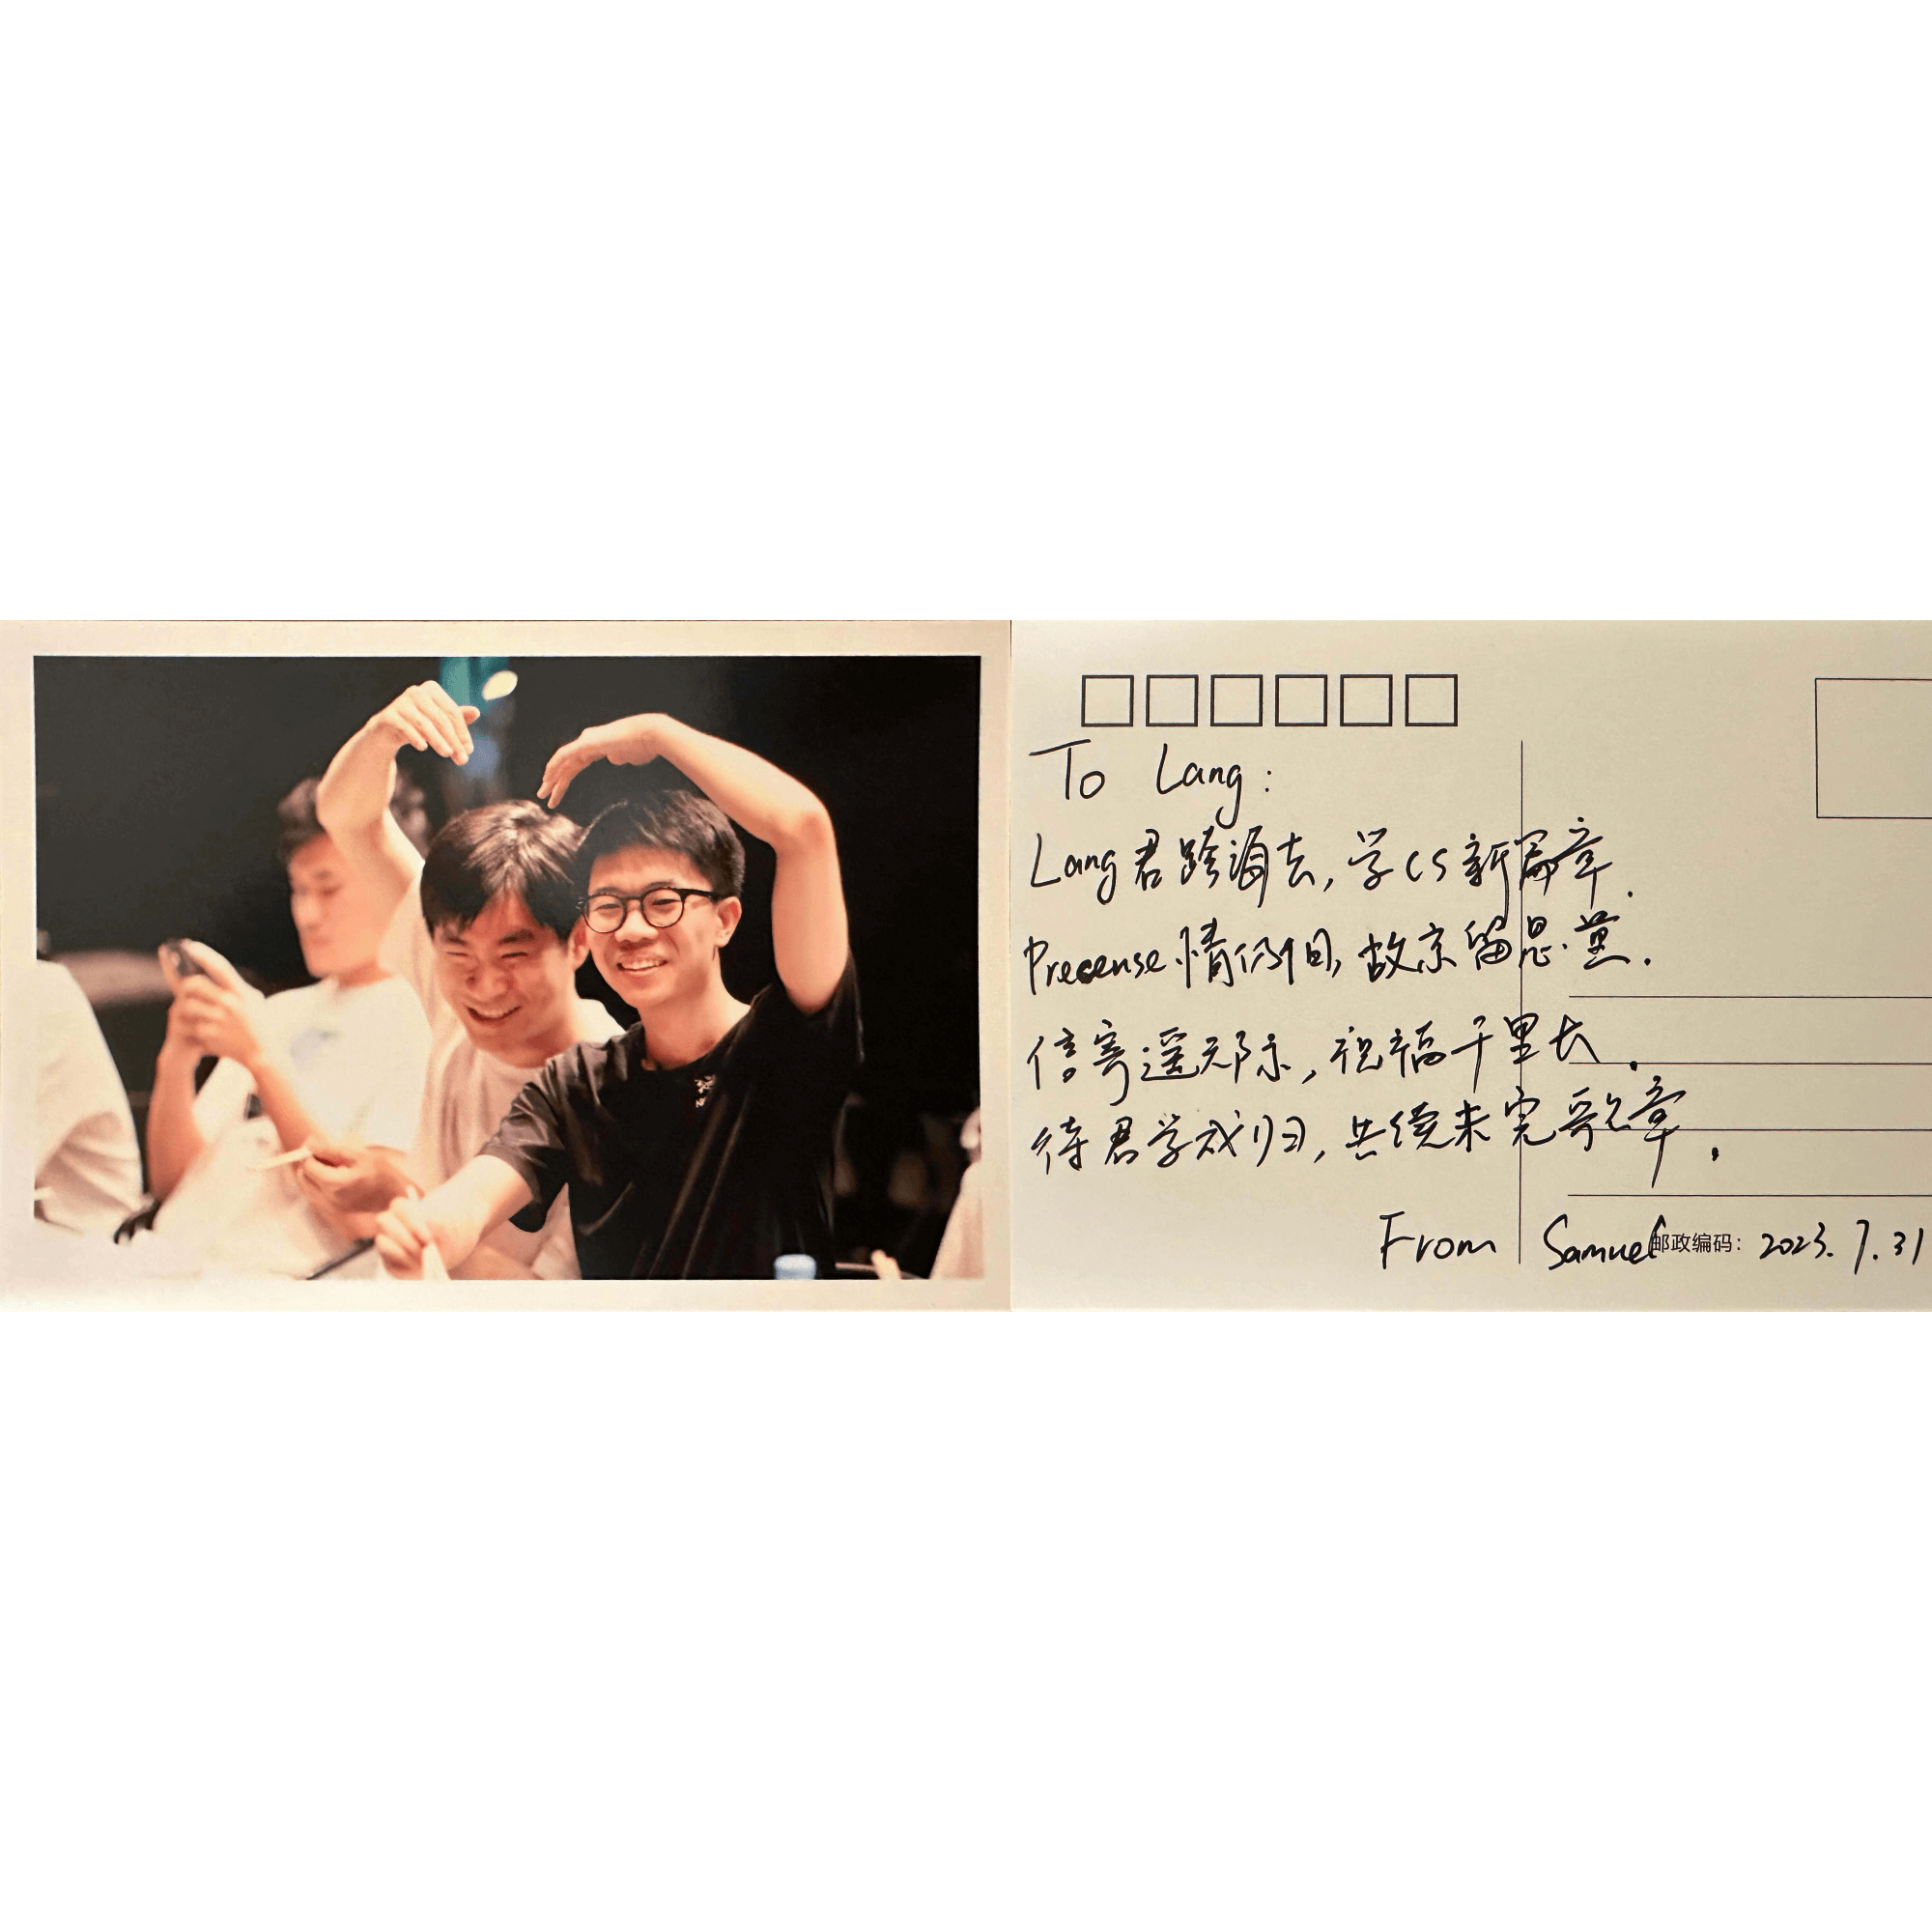 To Lang:
Lang君跨海去, 学CS新篇章.
Precense情仍旧, 故京留思堂.
信寄遥无际, 祝福千里长.
待君学成归, 共续未完歌章.
From Samuel 邮政编码: 2023.7.31